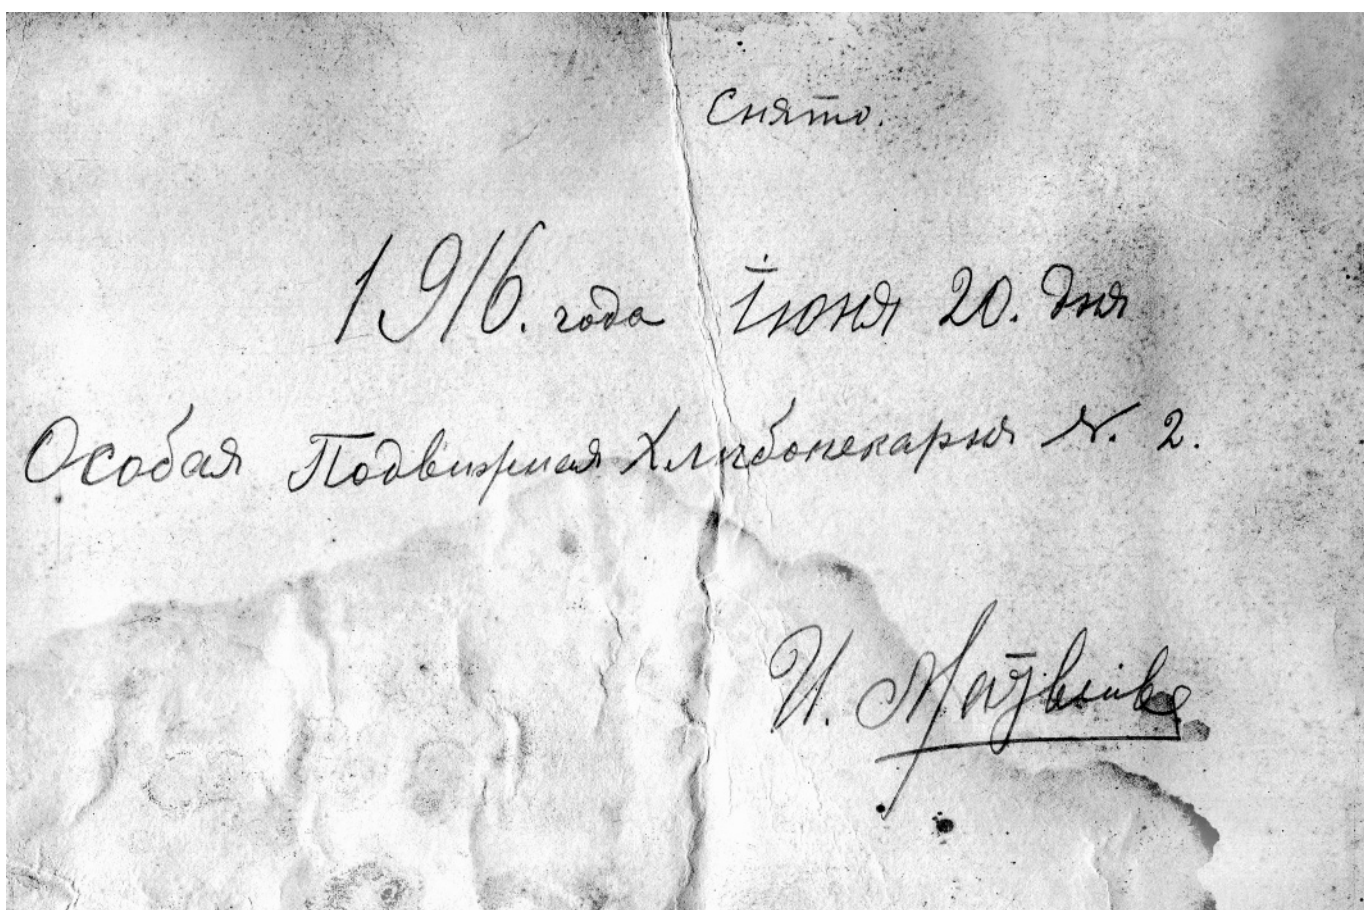 Снято.
1916. года Іюня 20. дня
Особая Подвижная Хлѣбопекарня №. 2.
И.